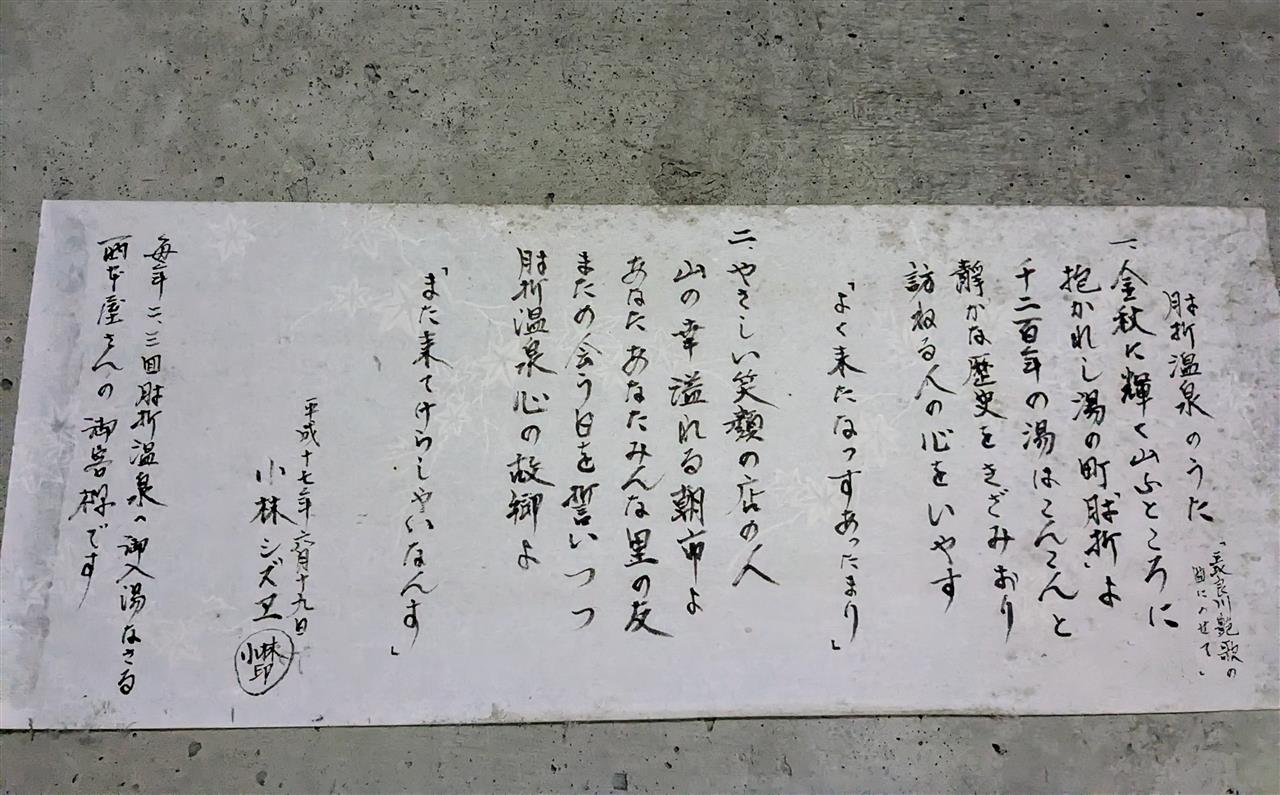 肘折温泉のうた
「長良川艶歌の
曲にのせて」
一、金秋に輝く山ふところに
抱かれし湯の町「肘折」よ
千二百年の湯はこんこんと
静かな歴史をきざみおり
訪ねる人の心をいやす
「よく来たなっすあったまり」
二、やさしい笑顔の店の人
山の幸溢れる朝市よ
あなたあなたみんな里の友
またの会う日を誓いつつ
肘折温泉心の故郷よ
「また来てけらしゃいなんす」
平成十七年六月十九日
小林シズエ
小林印
毎年二、三回肘折温泉へ御入湯なさる
西本屋さんの御客様です